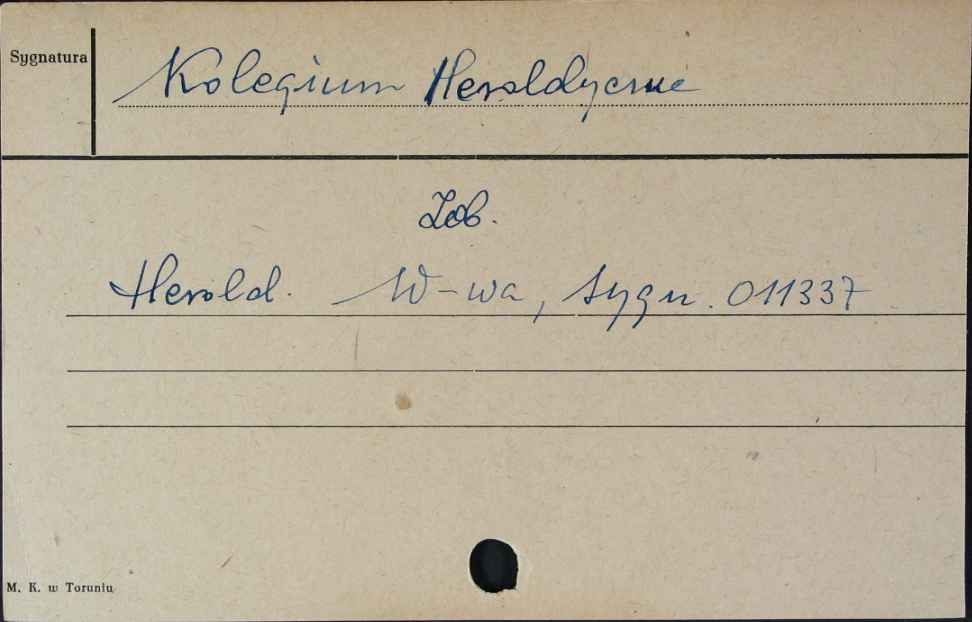 Sygnatura
Kolegium Heraldyczne
Zob.
Herold. W-wa, sygn. 011337
M. K. w Toruniu